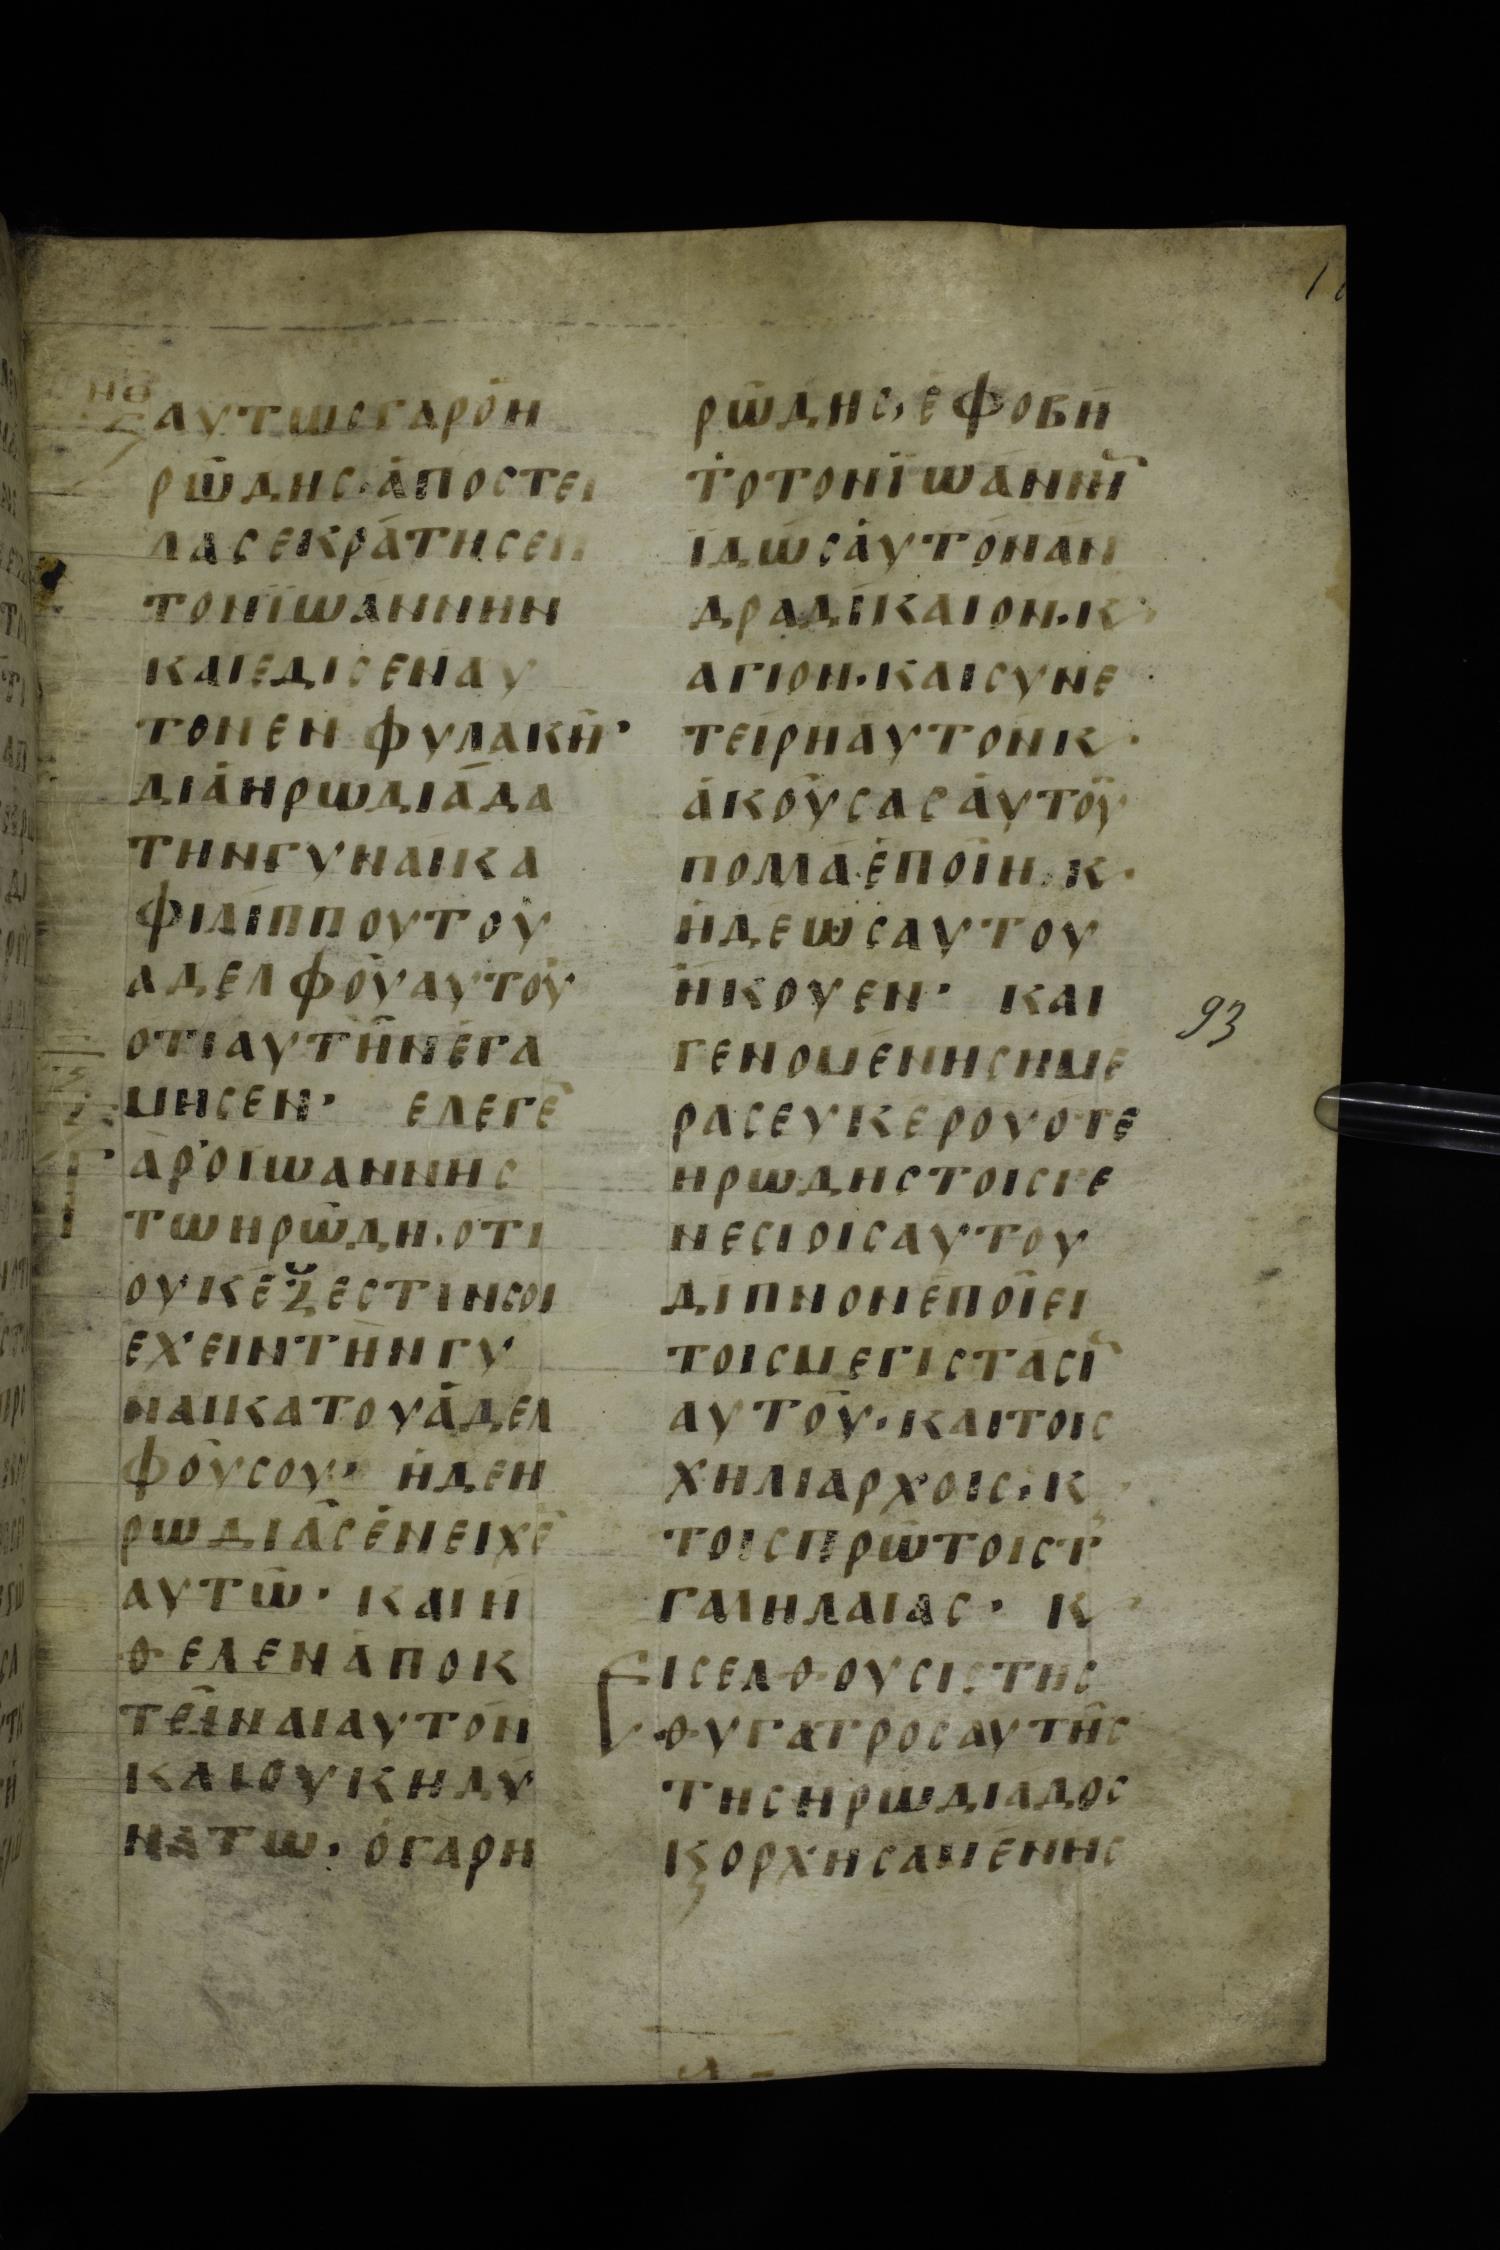 ΝΘ
Ϛ
ΑΥΤΩϹΓΑΡΟΗ
ΡΩΔΗϹ·ΑΠΟϹΤΕΙ
ΛΑϹΕΚΡΑΤΗϹΕΝ
ΤΟΝΪΩΑΝΝΗΝ
ΚΑΙΕΔΙϹΕΝΑΥ
ΤΟΝΕΝΦΥΛΑΚΗ·
ΔΙΑΗΡΩΔΙΑΔΑ
ΤΗΝΓΥΝΑΙΚΑ
ΦΙΛΙΠΠΟΥΤΟΥ
ΑΔΕΛΦΟΥΑΥΤΟΥ
ΟΤΙΑΥΤΗΝΕΓΑ
ΜΗϹΕΝ· ΕΛΕΓΕ
ΑΡΟΪΩΑΝΝΗϹ
ΤΩΗΡΩΔΗ·ΟΤΙ
ΟΥΚΕΞΕϹΤΙΝϹΟΙ
ΕΧΕΙΝΤΗΝΓΥ
ΝΑΙΚΑΤΟΥΑΔΕΛ
ΦΟΥϹΟΥ· ΗΔΕΗ
ΡΩΔΙΑϹΕΝΕΙΧΕ̅
ΑΥΤΩ· ΚΑΙΗ
ΘΕΛΕΝΑΠΟΚ
ΤΕΙΝΑΙΑΥΤΟΝ
ΚΑΙΟΥΚΗΔΥ
ΝΑΤΩ·ΟΓΑΡΗ
ΡΩΔΗϹ·ΕΦΟΒΗ
ΤΟΤΟΝΪΩΑΝΝΗ̅
ΪΔΩϹΑΥΤΟΝΑΝ
ΔΡΑΔΙΚΑΙΟΝ·Κ
ΑΓΙΟΝ·ΚΑΙϹΥΝΕ
ΤΕΙΡΗΑΥΤΟΝΚ
ΑΚΟΥϹΑϹΑΥΤΟΥ
ΠΟΛΛΑΕΠΟΙΗ·Κ
ΗΔΕΩϹΑΥΤΟΥ
ΗΚΟΥΕΝ· ΚΑΙ
ΓΕΝΟΜΕΝΗϹΗΜΕ
ΡΑϹΕΥΚΕΡΟΥΟΤΕ
ΗΡΩΔΗϹΤΟΙϹΓΕ
ΝΕϹΙΟΙϹΑΥΤΟΥ
ΔΙΠΝΟΝΕΠΟΙΕΙ
ΤΟΙϹΜΕΓΙϹΤΑϹΙ̅
ΑΥΤΟΥ·ΚΑΙΤΟΙϹ
ΧΗΛΙΑΡΧΟΙϹ·Κ
ΤΟΙϹΠΡΩΤΟΙϹΤ
ΓΑΛΗΛΑΙΑϹ· Κ
ΕΙϹΕΛΘΟΥϹΙϹΤΗϹ
ΘΥΓΑΤΡΟϹΑΥΤΗϹ
ΤΗϹΗΡΩΔΙΑΔΟϹ
ΚΟΡΧΗϹΑΜΕΝΗϹ
93